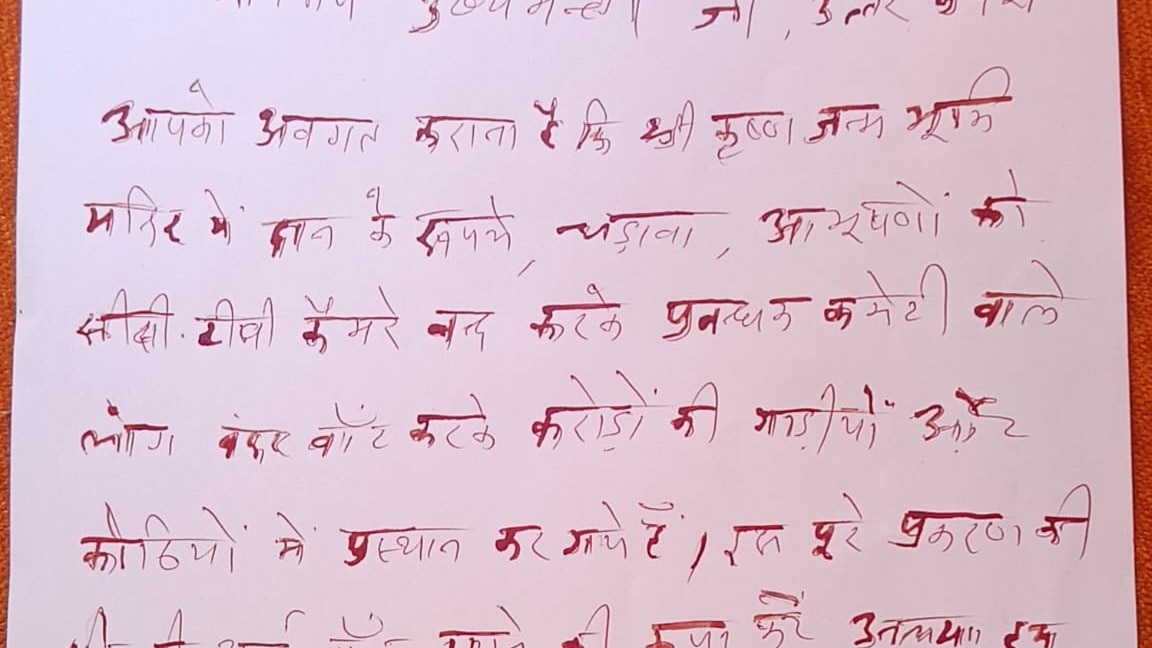 मुख्यमन्त्री जी, उत्तर
आपको अवगत कराना है कि श्री कृष्ण जन्म भूमि
मन्दिर में दान के रूपये, चढ़ावा, आभूषणों को
सीसी. टीवी कैमरे बन्द करके प्रबन्धक कमेटी वाले
लोग बंदर बाँट करके करोड़ों की गाड़ीयों और
कोठियों में प्रस्थान कर गये हैं, इस पूरे प्रकरण की
की कृपा करें अन्यथा हम